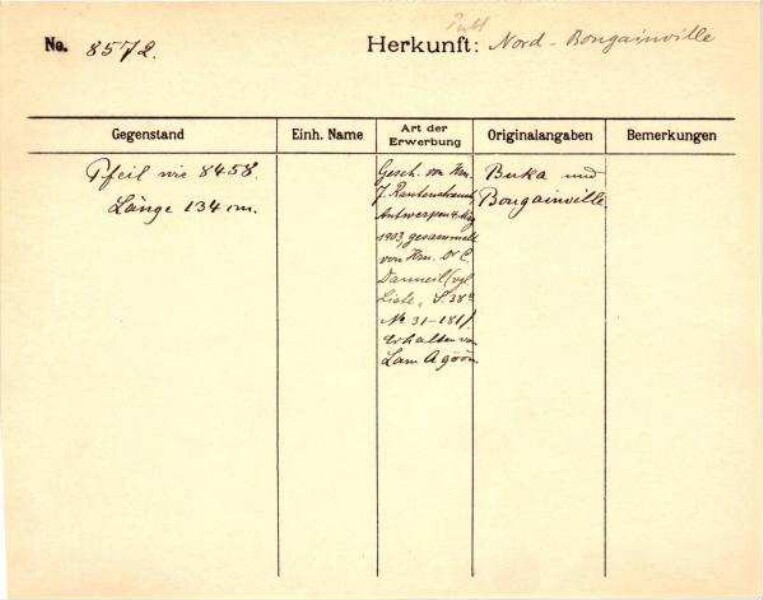 No. 8572. Herkunft: Nord-Bougainville
Gegenstand Einh. Name Art der Erwerbung Originalangaben Bemerkungen
Pfeil wie 8458.
Länge 134 cm.
Gesch. von Hrn.
J. Rautenstrauch,
Antwerpen
1903, gesammelt
von Hrn. Dr C.
Danneil (vgl.
Liste, S. 38
No 31-181).
Erhalten von
Lam Agöön
Buka und
Bougainville.